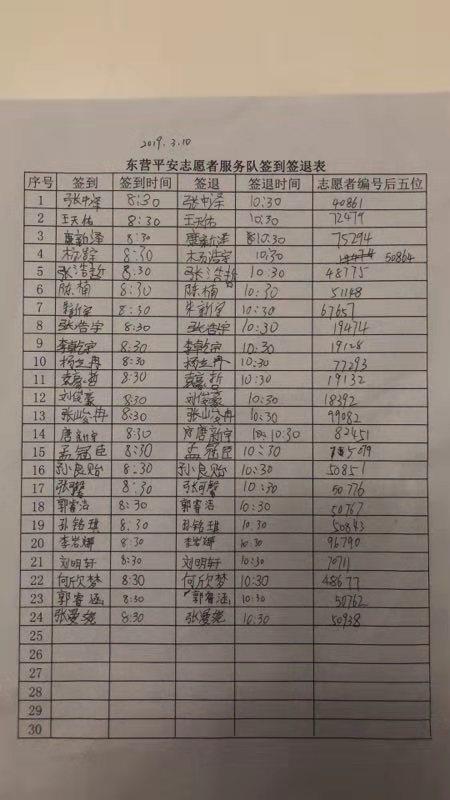 2019.3.10
东营平安志愿者服务队签到签退表
序号 签到 签到时间 签退 签退时间 志愿者编号后五位
1 8:30 10:30 40861
2 王天佑 8:30 王天佑 10:30 72479
3 康新泽 8:30 康新泽 10:30 75294
4 8:30 10:30 50864
5 张浩哲 8:30 张浩哲 10:30 48775
6 陈楠 8:30 陈楠 10:30 51148
7 朱新宇 8:30 朱新宇 10:30 67657
8 张浩宇 8:30 张浩宇 10:30 19474
9 李乾宗 8:30 李乾宗 10:30 19128
10 杨立冉 8:30 杨立冉 10:30 77293
11 袁豪哲 8:30 袁豪哲 10:30 19132
12 刘俊豪 8:30 刘俊豪 10:30 18392
13 张峻冉 8:30 张峻冉 10:30 99082
14 唐新宇 8:30 唐新宇 10:30 82451
15 孟冠臣 8:30 孟冠臣 10:30
16 孙良贻 8:30 孙良贻 10:30 50851
17 8:30 10:30 50776
18 郭睿浩 8:30 郭睿浩 10:30 50767
19 孙铭琪 8:30 孙铭琪 10:30 50843
20 李岩娜 8:30 李岩娜 10:30 96790
21 刘明轩 8:30 刘明轩 10:30 70711
22 何欣梦 8:30 何欣梦 10:30 48677
23 郭睿涵 8:30 郭睿涵 10:30 50762
24 8:30 10:30 50938
25
26
27
28
29
30